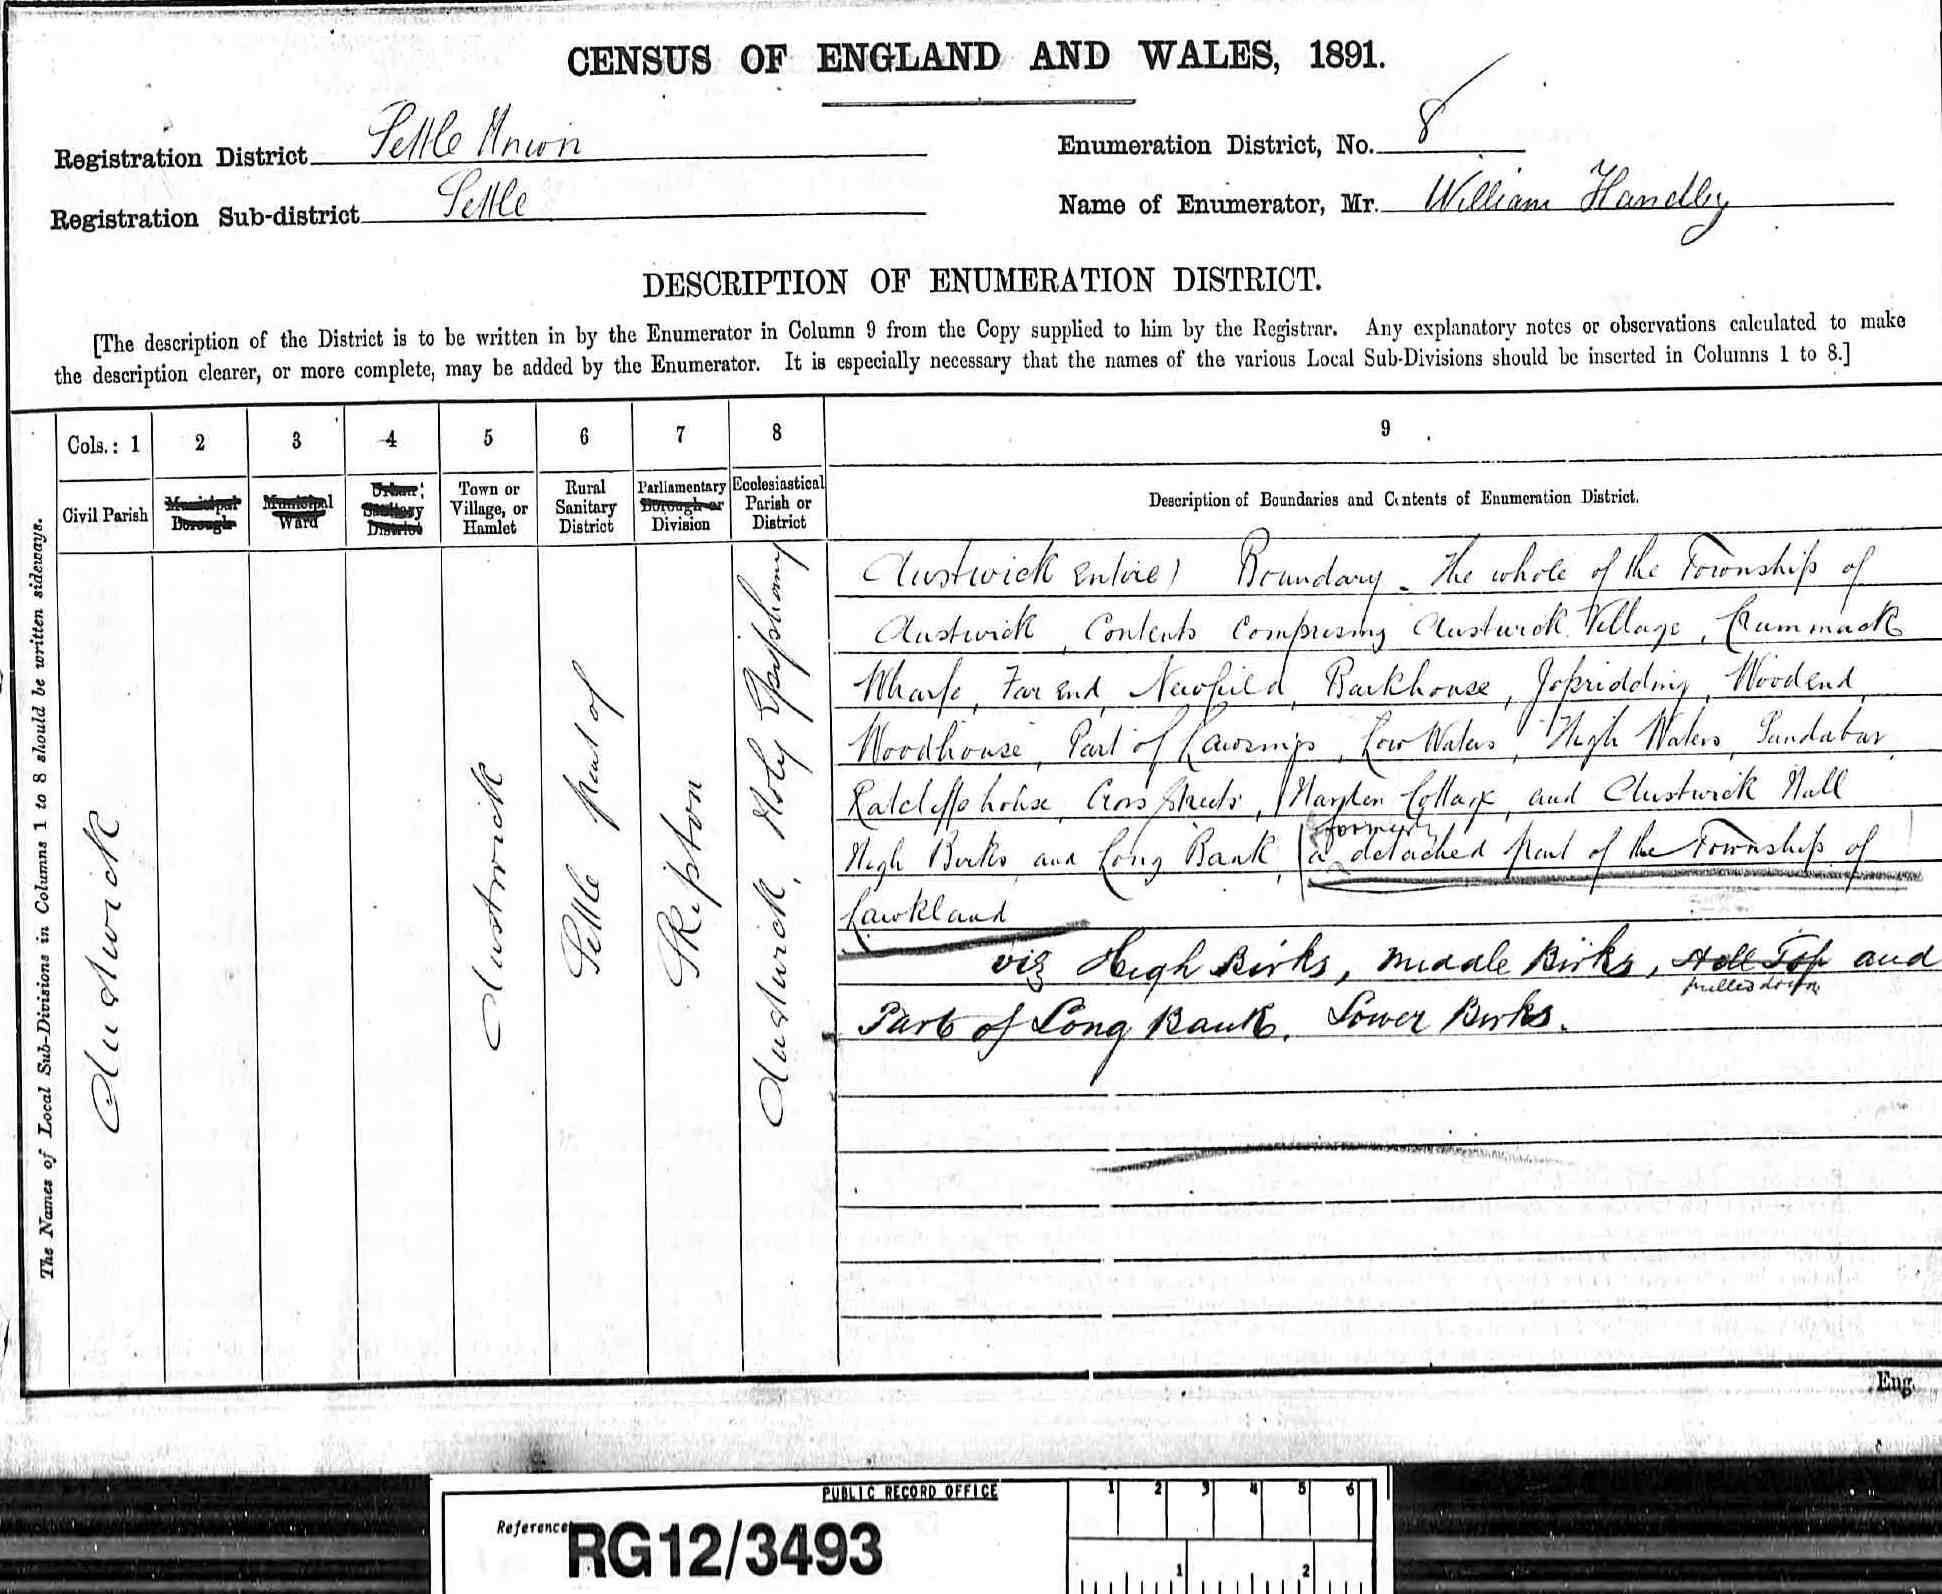 CENSUS OF ENGLAND AND WALES, 1891.
Registration District Settle Union
Enumeration District, No. 8
Registration Sub-district Settle
Name of Enumerator, Mr. William Handby
DESCRIPTION OF ENUMERATION DISTRICT.
[The description of the District is to be written in by the Enumerator in Column 9 from the Copy supplied to him by the Registrar. Any explanatory notes or observations calculated to make
the description clearer, or more complete, may be added by the Enumerator. It is especially necessary that the names of the various Local Sub-Divisions should be inserted in Columns 1 to 8.]
The Names of Local Sub-Divisions in Columns 1 to 8 should be written sideways.
Cols.: 1 2 3 4 5 6 7 8 9
Civil Parish
Municipal Borough
Municipal Ward
Urban Sanitary District
Town or Village, or Hamlet
Rural Sanitary District
Parliamentary Borough or Division
Ecclesiastical Parish or District
Description of Boundaries and Contents of Enumeration District.
Austwick
Austwick
Settle part of
Skipton
Austwick, Holy Epiphany
Austwick Entire) Boundary - The whole of the Township of
Austwick, Contents Comprising Austwick Village, Crummack
Wharfe, Far End, Newfield, Barkhouse, Jopridding, Woodend,
Woodhouse, Part of Lawsings, Low Waters, High Waters, Pandabar,
Ratcliffe house, Cross Streets, Harden Cottage, and Austwick Hall
High Birks and Long Bank, (formerly a detached part of the Township of
Lawkland
viz High Birks, Middle Birks, Hill Top and
pulled down
Part of Long Bank. Lower Birks.
Eng.
PUBLIC RECORD OFFICE
Reference
RG12/3493
1 2 3 4 5 6
1 2